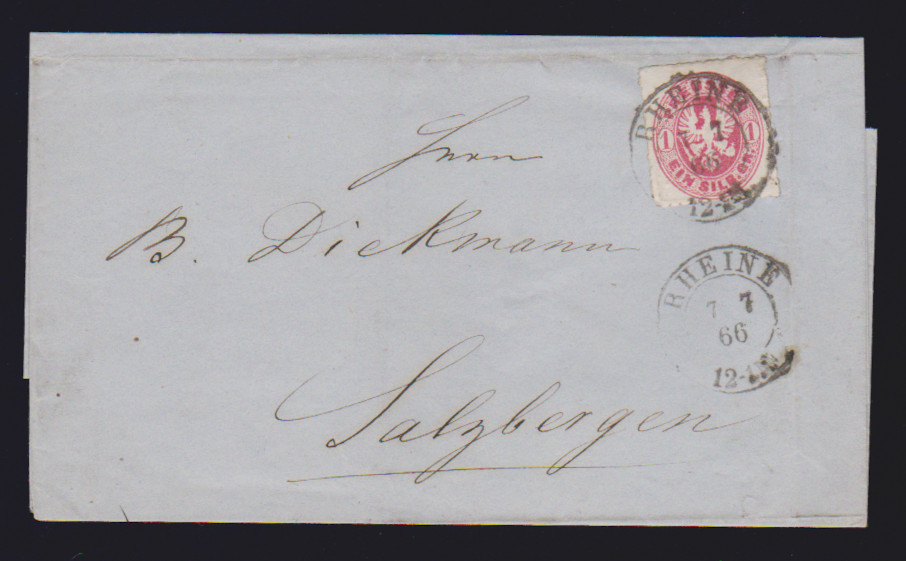 RHEINE
7
66
12-
1
1
EIN SILB. GR.
Herrn
B. Dickmann
RHEINE
7 7
66
12-1
Salzbergen